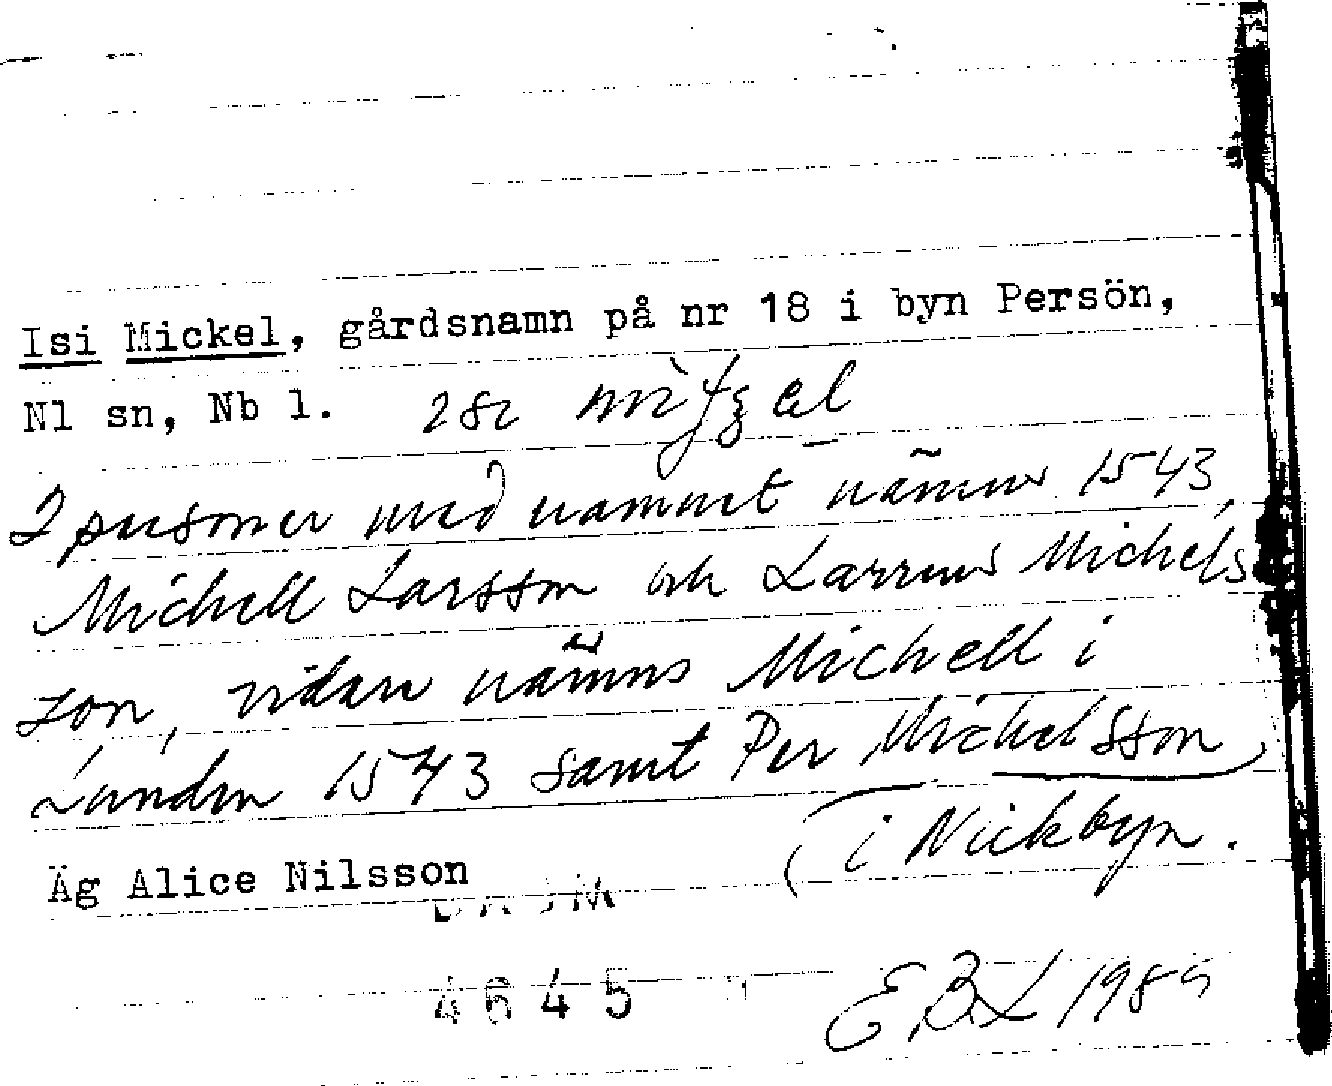 Isi Mickel, gårdsnamn på nr 18 i byn Persön,
Nl sn, Nb l.
2 personer med namnet nämns 1543,
Michell Larsson och Larrens Michels
son, vidare nämns Michell i
Lunden 1543 samt Per Michelsson
i Nickbyn.
Äg Alice Nilsson
DAUM
4645
EBL 1989